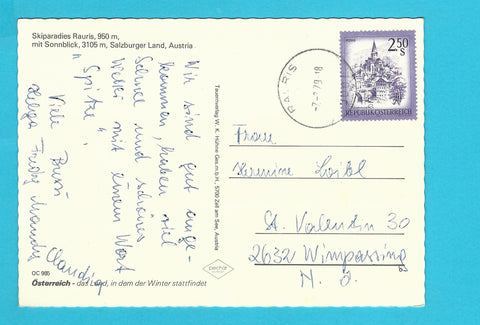 Skiparadies Rauris, 950 m,
mit Sonnblick, 3105 m, Salzburger Land, Austria
Wir sind gut ange-
kommen, haben viel
Schnee und schönes
Wetter mit einem Wort
"Spitze"
Viele Bussi
Helga
Claudia
OC 986
Österreich - das Land, in dem der Winter stattfindet
Tauernverlag W. K. Hühne Ges.m.b.H., 5700 Zell am See, Austria
RAURIS
2.50
S
REPUBLIK ÖSTERREICH
Frau
Hermine Loibl
St. Valentin 30
2632 Wimpassing
N. Ö.